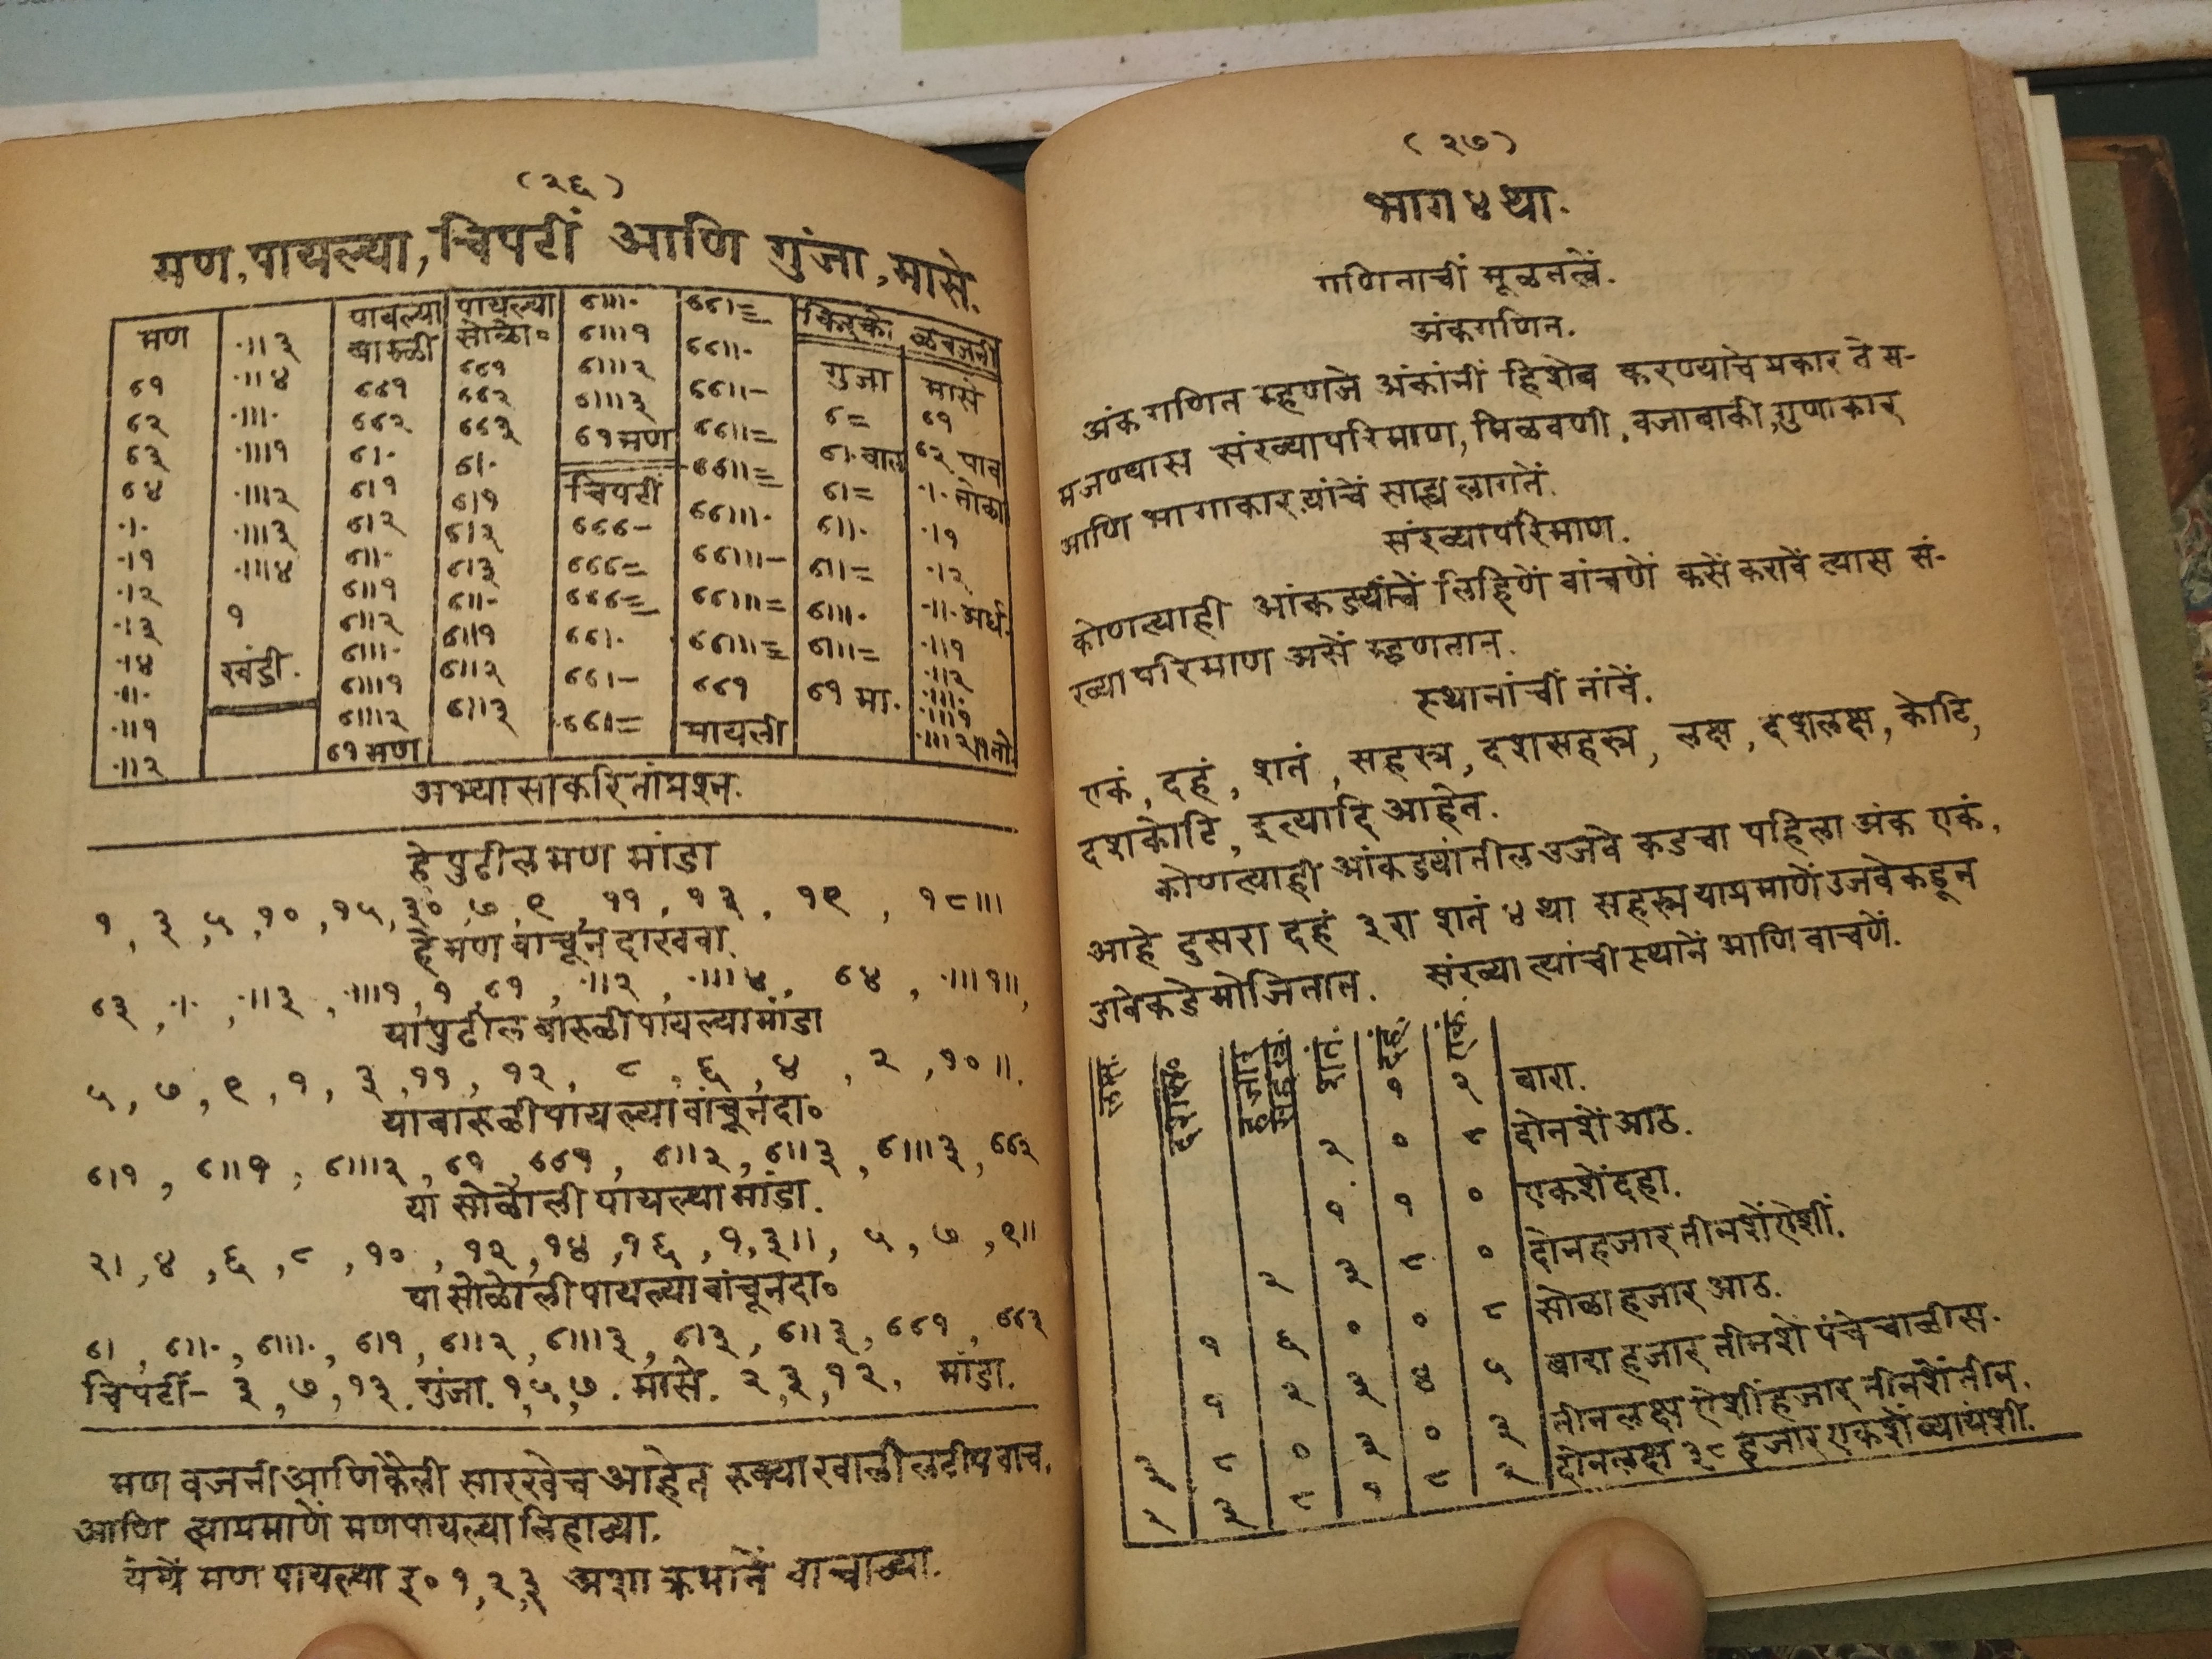 (२६)
मण, पायल्या, चिपटीं आणि गुंजा, मासे.
मण
६१
६२
६३
६४
.।.
.।१
.।२
.।३
.।४
.॥.
.॥१
.॥२
.॥३
.॥४
.॥।.
.॥।१
.॥।२
.॥।३
.॥।४
१
खंडी.
पायल्या
बारुळी
६६१
६६२
६।.
६।१
६।२
६॥.
६॥१
६॥२
६॥।.
६॥।१
६॥।२
६१ मण
पायल्या
सोळो०
६६१
६६२
६६३
६।.
६।१
६।२
६।३
६॥.
६॥१
६॥२
६॥३
६॥।.
६॥।१
६॥।२
६॥।३
६१ मण
चिपटीं
६६६-
६६६=
६६६≡
६६।.
६६।-
६६।=
६६।≡
६६॥.
६६॥-
६६॥=
६६॥≡
६६॥।.
६६॥।-
६६॥।=
६६॥।≡
६६१
पायली
गुंजा
६=
६।. वाल
६।=
६॥.
६॥=
६॥।.
६॥।=
६१ मा.
मासे
६१
६२ पाव
.।. तोळा
.।१
.।२
.॥. अर्ध.
.॥१
.॥२
.॥।.
.॥।१
.॥।२
अभ्यासाकरितां प्रश्न.
हे पुढील मण मांडा
१, ३, ५, १०, १५, ३०, ७, ९, ११, १३, १९, १८॥।
हे मण वाचून दाखवा.
६३, .।., .॥३, .॥।१, १, ६१, .॥२, .॥।४, ६४, .॥।१॥,
या पुढील बारुळी पायल्या मांडा
५, ७, ९, १, ३, ११, १२, ८, ६, ४, २, १०॥.
या बारुळी पायल्या वांचून दा०
६।१, ६॥१, ६॥।२, ६१, ६६१, ६॥२, ६॥३, ६॥।३, ६६२
या सोळोली पायल्या मांडा.
२।, ४, ६, ८, १०, १२, १४, १६, १, ३॥, ५, ७, ९॥
या सोळोली पायल्या वांचून दा०
६।, ६॥., ६॥।., ६।१, ६॥२, ६॥।३, ६।३, ६॥३, ६६१, ६६३
चिपटीं- ३, ७, १३. गुंजा. १, ५, ७. मासे. २, ३, १२, मांडा.
मण वजनी आणि कैली सारखेच आहेत रुप्या खालीं लटीप वाच.
आणि त्याप्रमाणें मण पायल्या लिहाव्या.
येथें मण पायल्या इ० १, २, ३ अशा क्रमानें वाचाव्या.
(२७)
भाग ४ था.
गणिताचीं मूळतत्वें.
अंकगणित.
अंक गणित म्हणजे अंकांनीं हिशेब करण्याचे प्रकार ते स-
मजण्यास संख्यापरिमाण, मिळवणी, वजाबाकी, गुणाकार
आणि भागाकार यांचें साह्य लागतें.
संख्यापरिमाण.
कोणत्याही आंकड्यांचें लिहिणें वांचणें कसें करावें त्यास सं-
ख्या परिमाण असें म्हणतात.
स्थानांचीं नांवें.
एकं, दहं, शतं, सहस्त्र, दशसहस्त्र, लक्ष, दशलक्ष, कोटि,
दशकोटि, इत्यादि आहेत.
कोणत्याही आंकड्यांतील उजवे कडचा पहिला अंक एकं,
आहे दुसरा दहं ३ रा शतं ४ था सहस्त्र याप्रमाणें उजवेकडून
डावेकडे मोजितात. संख्या त्यांची स्थानें आणि वाचणें.
लक्ष. शतं दहं एकं
१ २ बारा.
२ ० ८ दोनशें आठ.
१ १ ० एकशें दहा.
२ ३ ८ ० दोन हजार तीनशें ऐशीं.
१ ६ ० ० ८ सोळा हजार आठ.
१ २ ३ ४ ५ बारा हजार तीनशे पंचेचाळीस.
३ ८ ० ३ ० ३ तीन लक्ष ऐशीं हजार तीनशें तीन.
२ ३ ८ १ ८ २ दोन लक्ष ३८ हजार एकशें ब्यायशी.